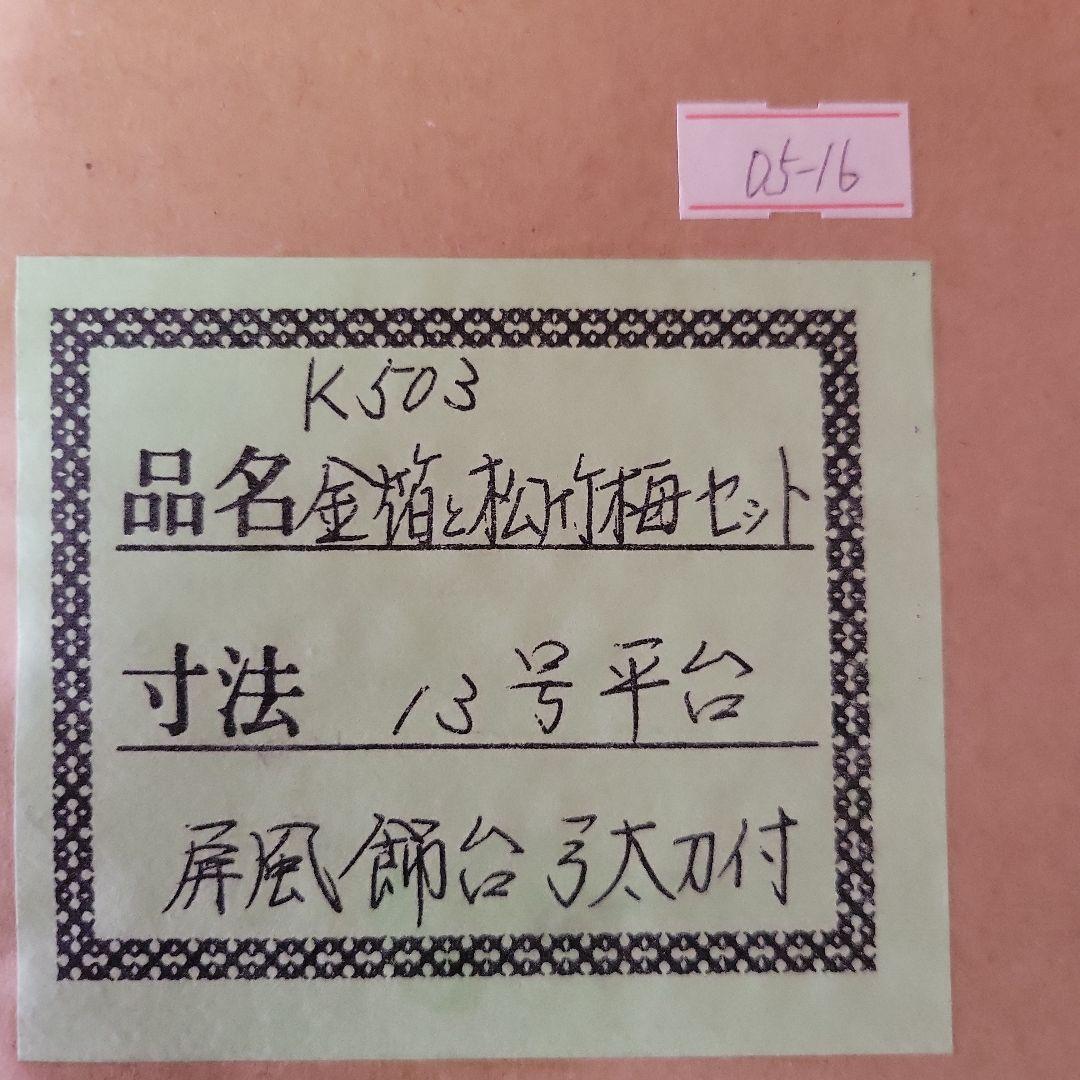 05-16
K503
品名 金箔と松竹梅セット
寸法 13号平台
屏風飾台弓太刀付